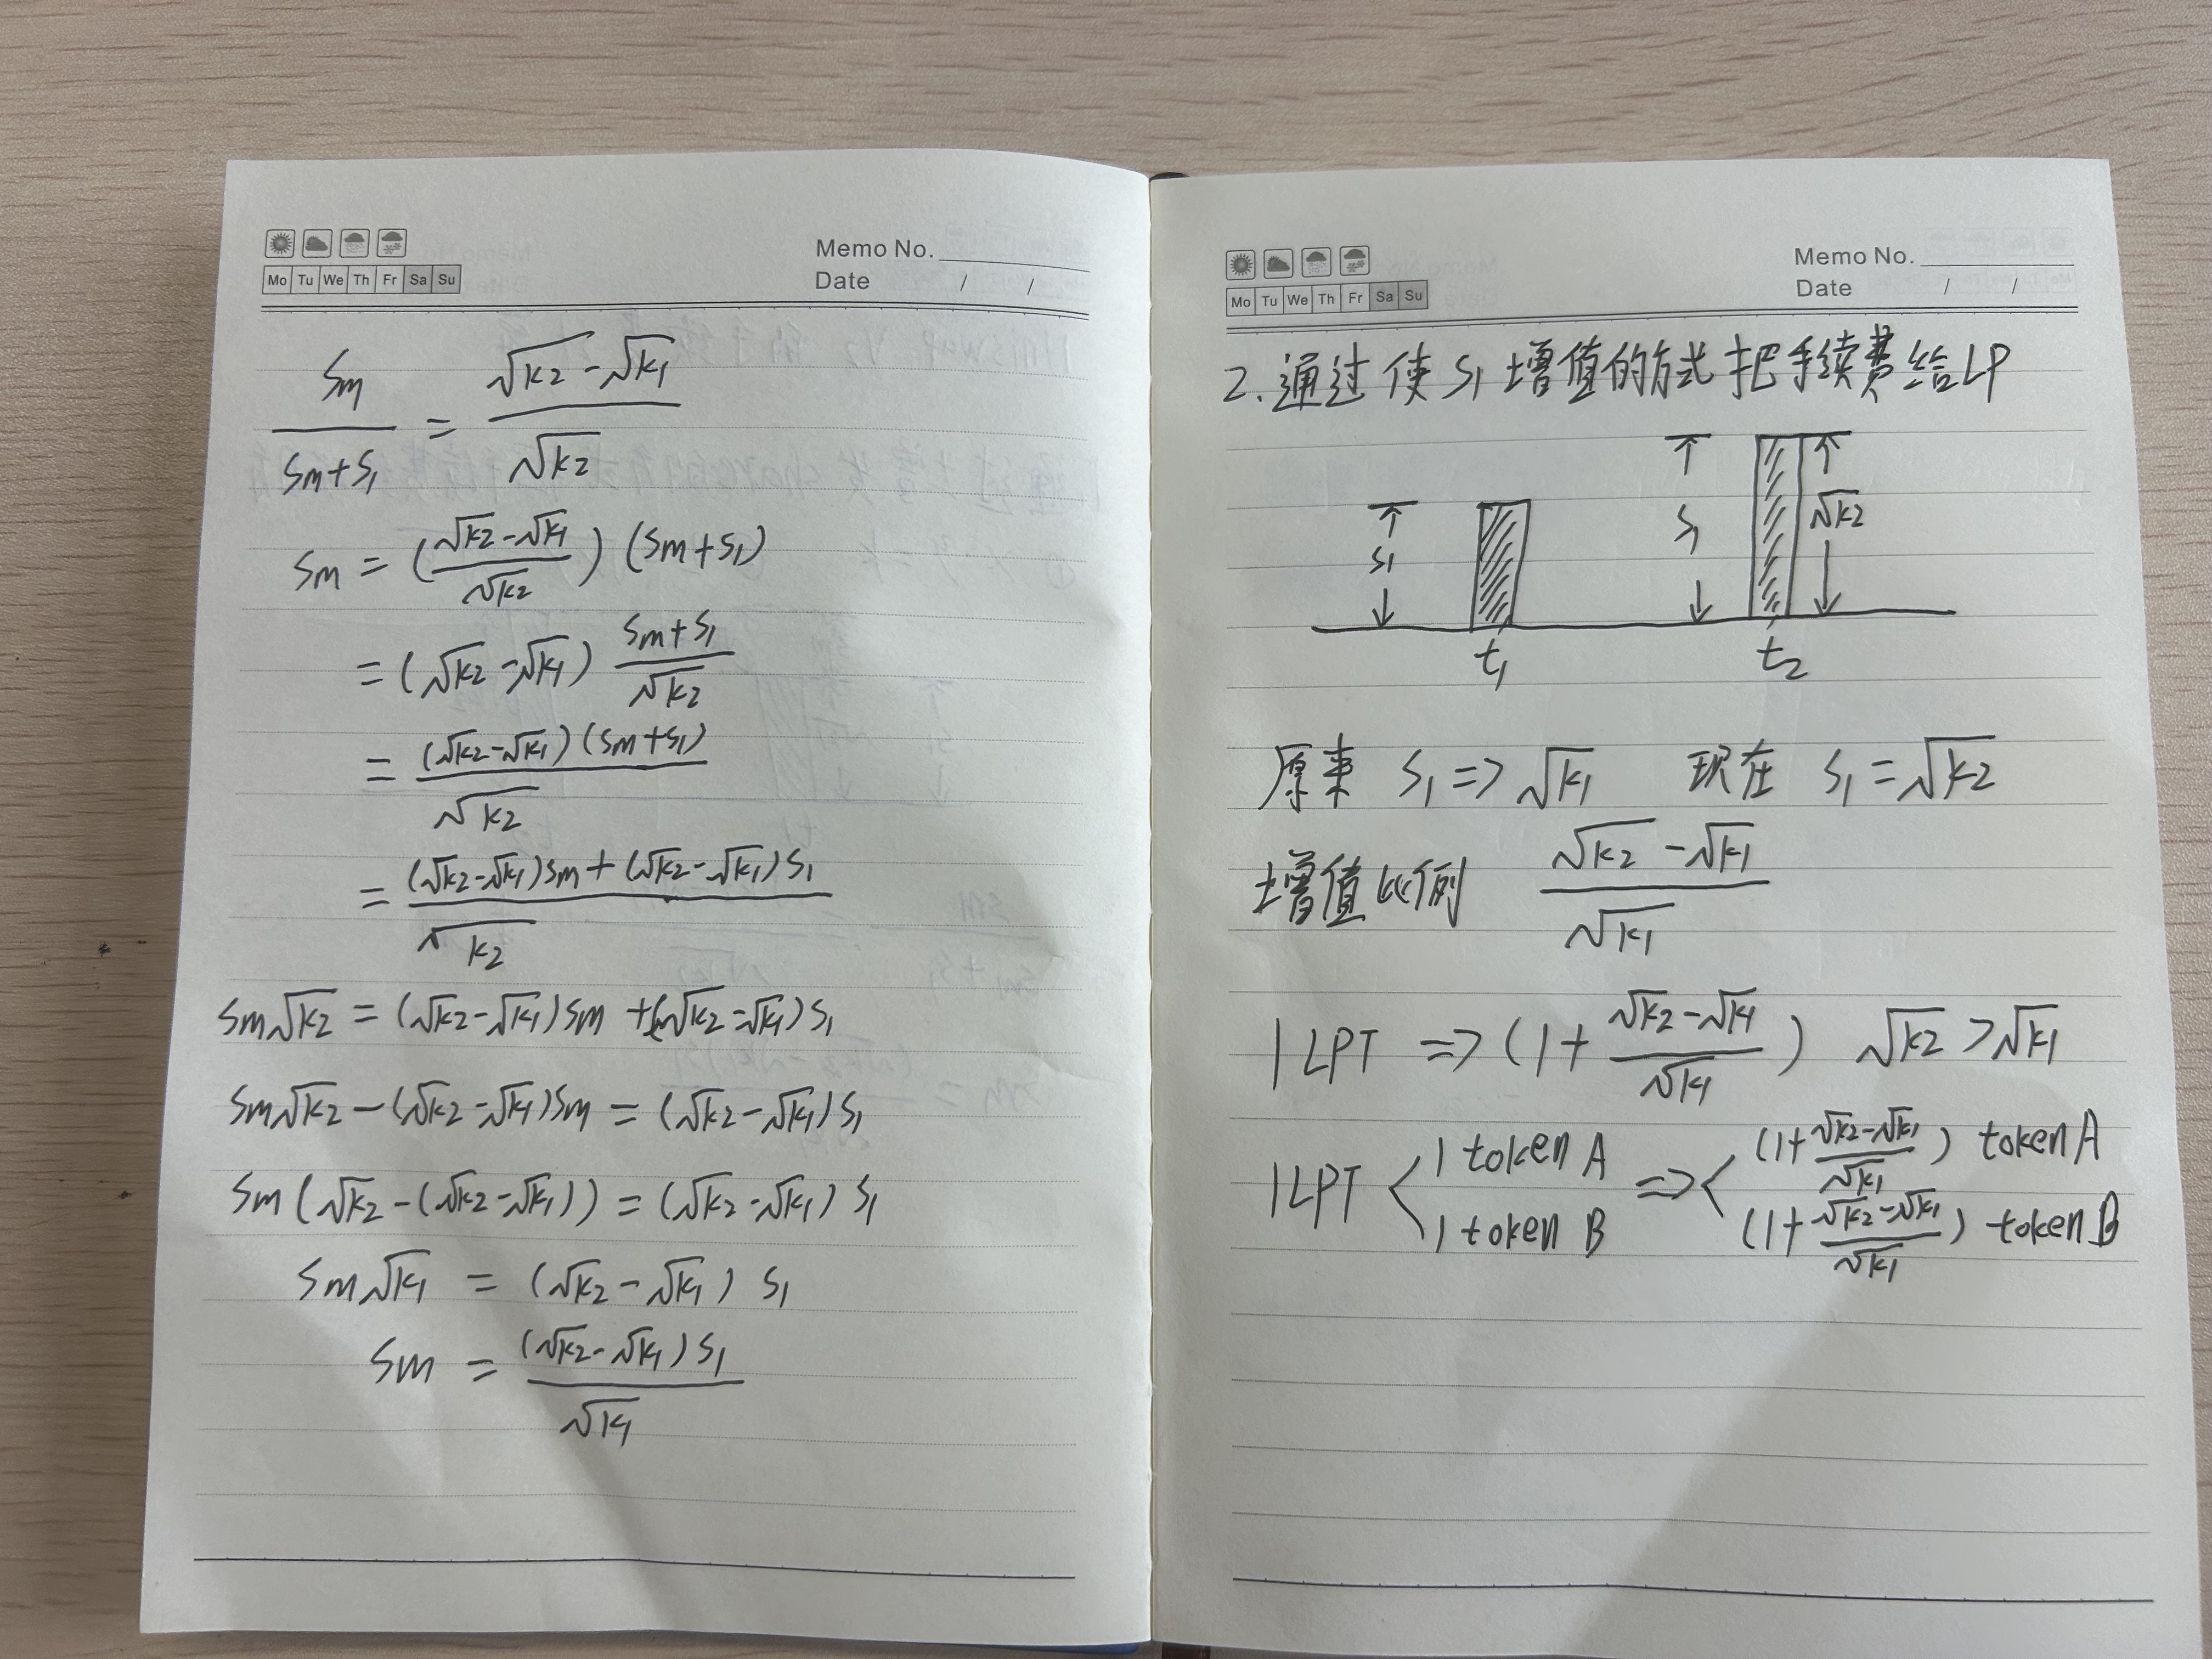 Mo Tu We Th Fr Sa Su
Memo No.
Date / /
Sm/(Sm+S₁) = (√k₂-√k₁)/√k₂
Sm = ((√k₂-√k₁)/√k₂) (Sm+S₁)
= (√k₂-√k₁) (Sm+S₁)/√k₂
= (√k₂-√k₁)(Sm+S₁)/√k₂
= ((√k₂-√k₁)Sm+(√k₂-√k₁)S₁)/√k₂
Sm√k₂ = (√k₂-√k₁)Sm+(√k₂-√k₁)S₁
Sm√k₂-(√k₂-√k₁)Sm = (√k₂-√k₁)S₁
Sm(√k₂-(√k₂-√k₁)) = (√k₂-√k₁)S₁
Sm√k₁ = (√k₂-√k₁) S₁
Sm = (√k₂-√k₁)S₁/√k₁
Mo Tu We Th Fr Sa Su
Memo No.
Date / /
2.通过使S₁增值的方式把手续费给LP
S₁ S₁ √k₂
t₁ t₂
原来 S₁=>√k₁ 现在 S₁=√k₂
增值比例 (√k₂-√k₁)/√k₁
1LPT => (1+(√k₂-√k₁)/√k₁) √k₂>√k₁
1LPT < 1 token A => < (1+(√k₂-√k₁)/√k₁) token A
1 token B (1+(√k₂-√k₁)/√k₁) token B